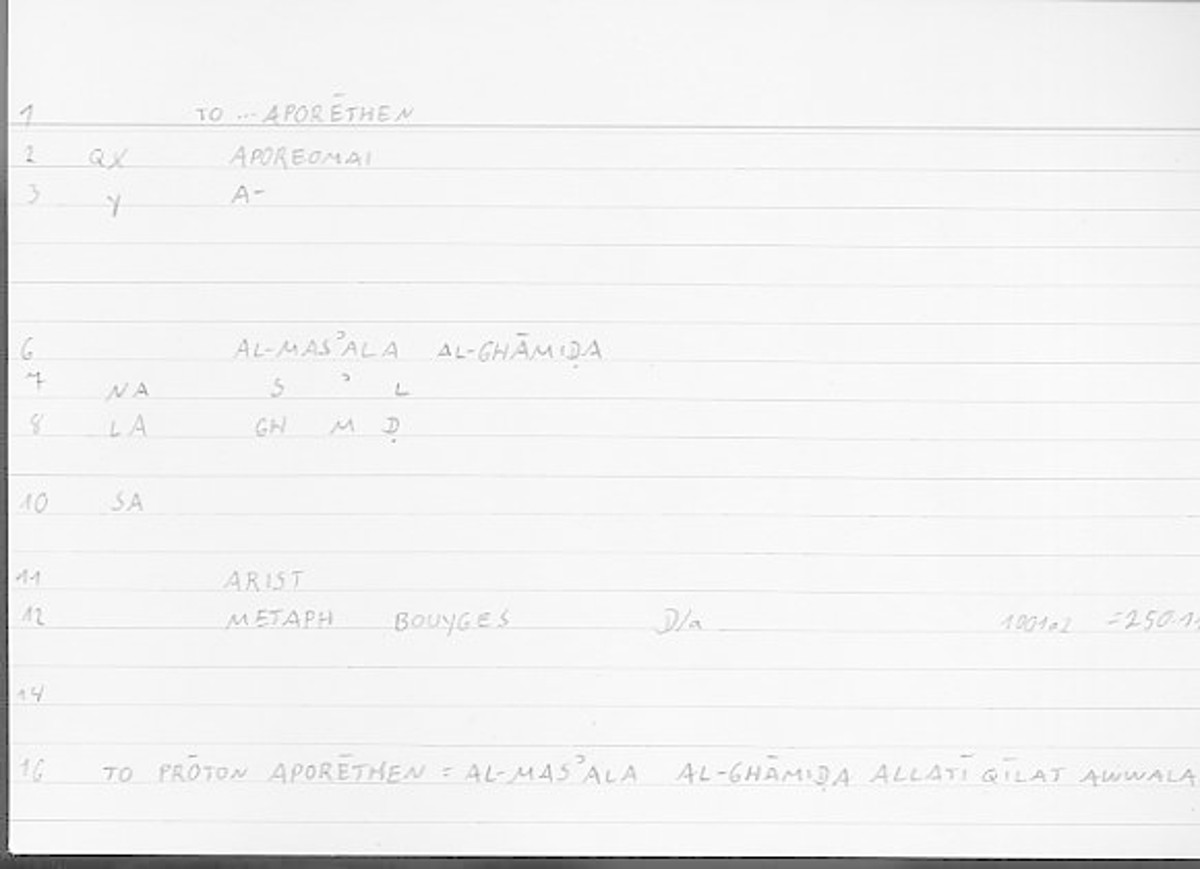 1 TO ... APORĒTHEN
2 QX APOREOMAI
3 Y A-
6 AL-MASʾALA AL-GHĀMIḌA
7 NA S ʾ L
8 LA GH M Ḍ
10 SA
11 ARIST
12 METAPH BOUYGES D/a 1001a2 =250.11
14
16 TO PRŌTON APORĒTHEN = AL-MASʾALA AL-GHĀMIḌA ALLATĪ QĪLAT AWWALA